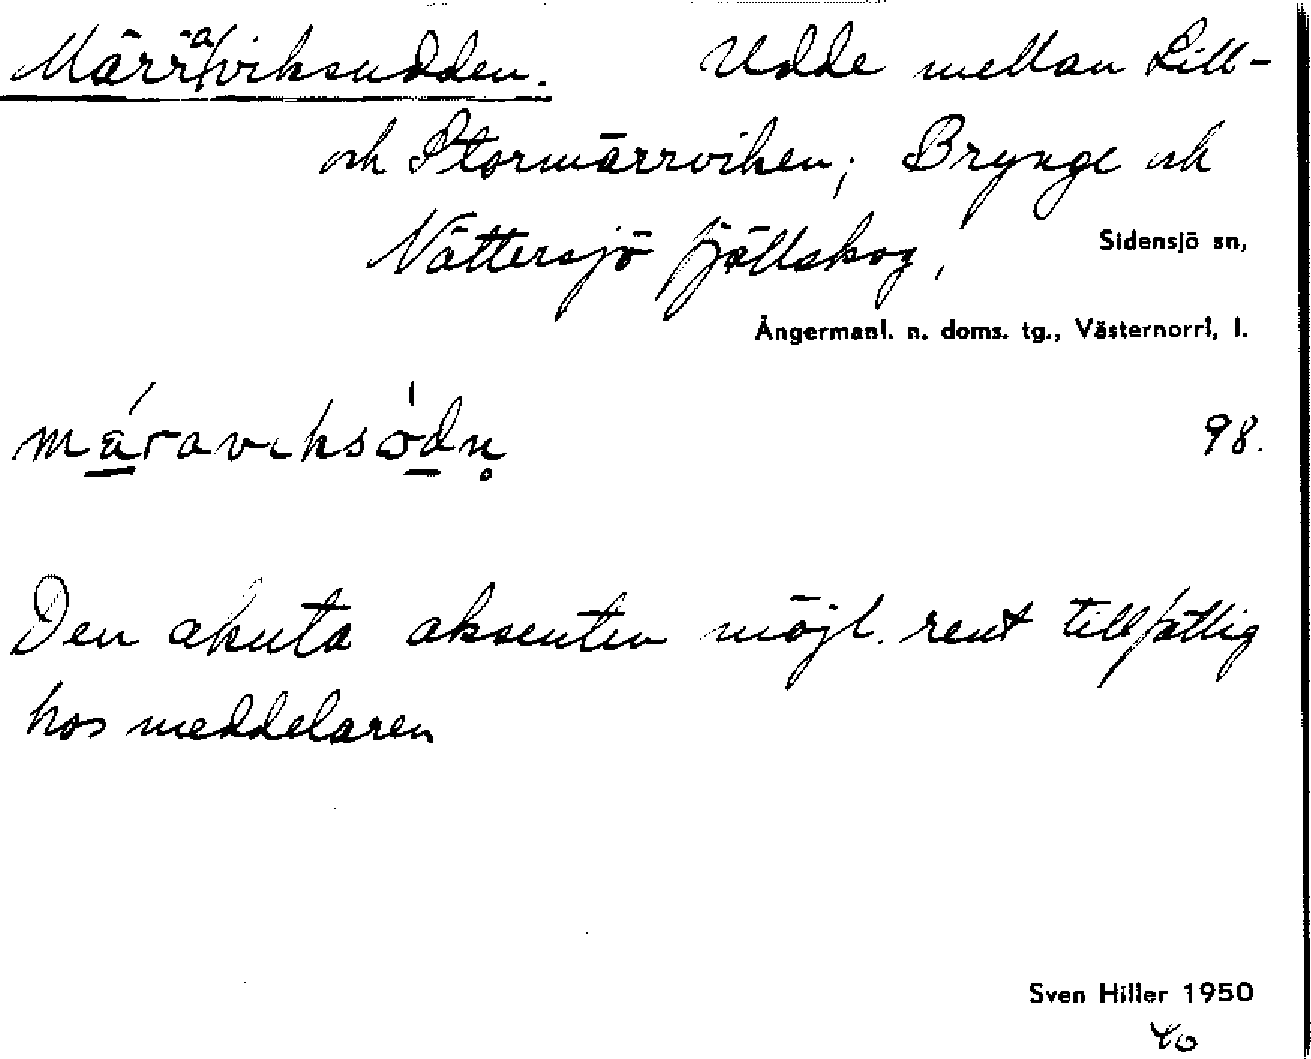 Märraviksudden. Udde mellan Lill-
och Stormärrviken; Brynge och
Nättersjö fjällskog,
Sidensjö sn,
Ångermanl. n. doms. tg., Västernorrl. l.
98.
Den akuta aksenten möjl. rent tillfällig
hos meddelaren
Sven Hiller 1950
40